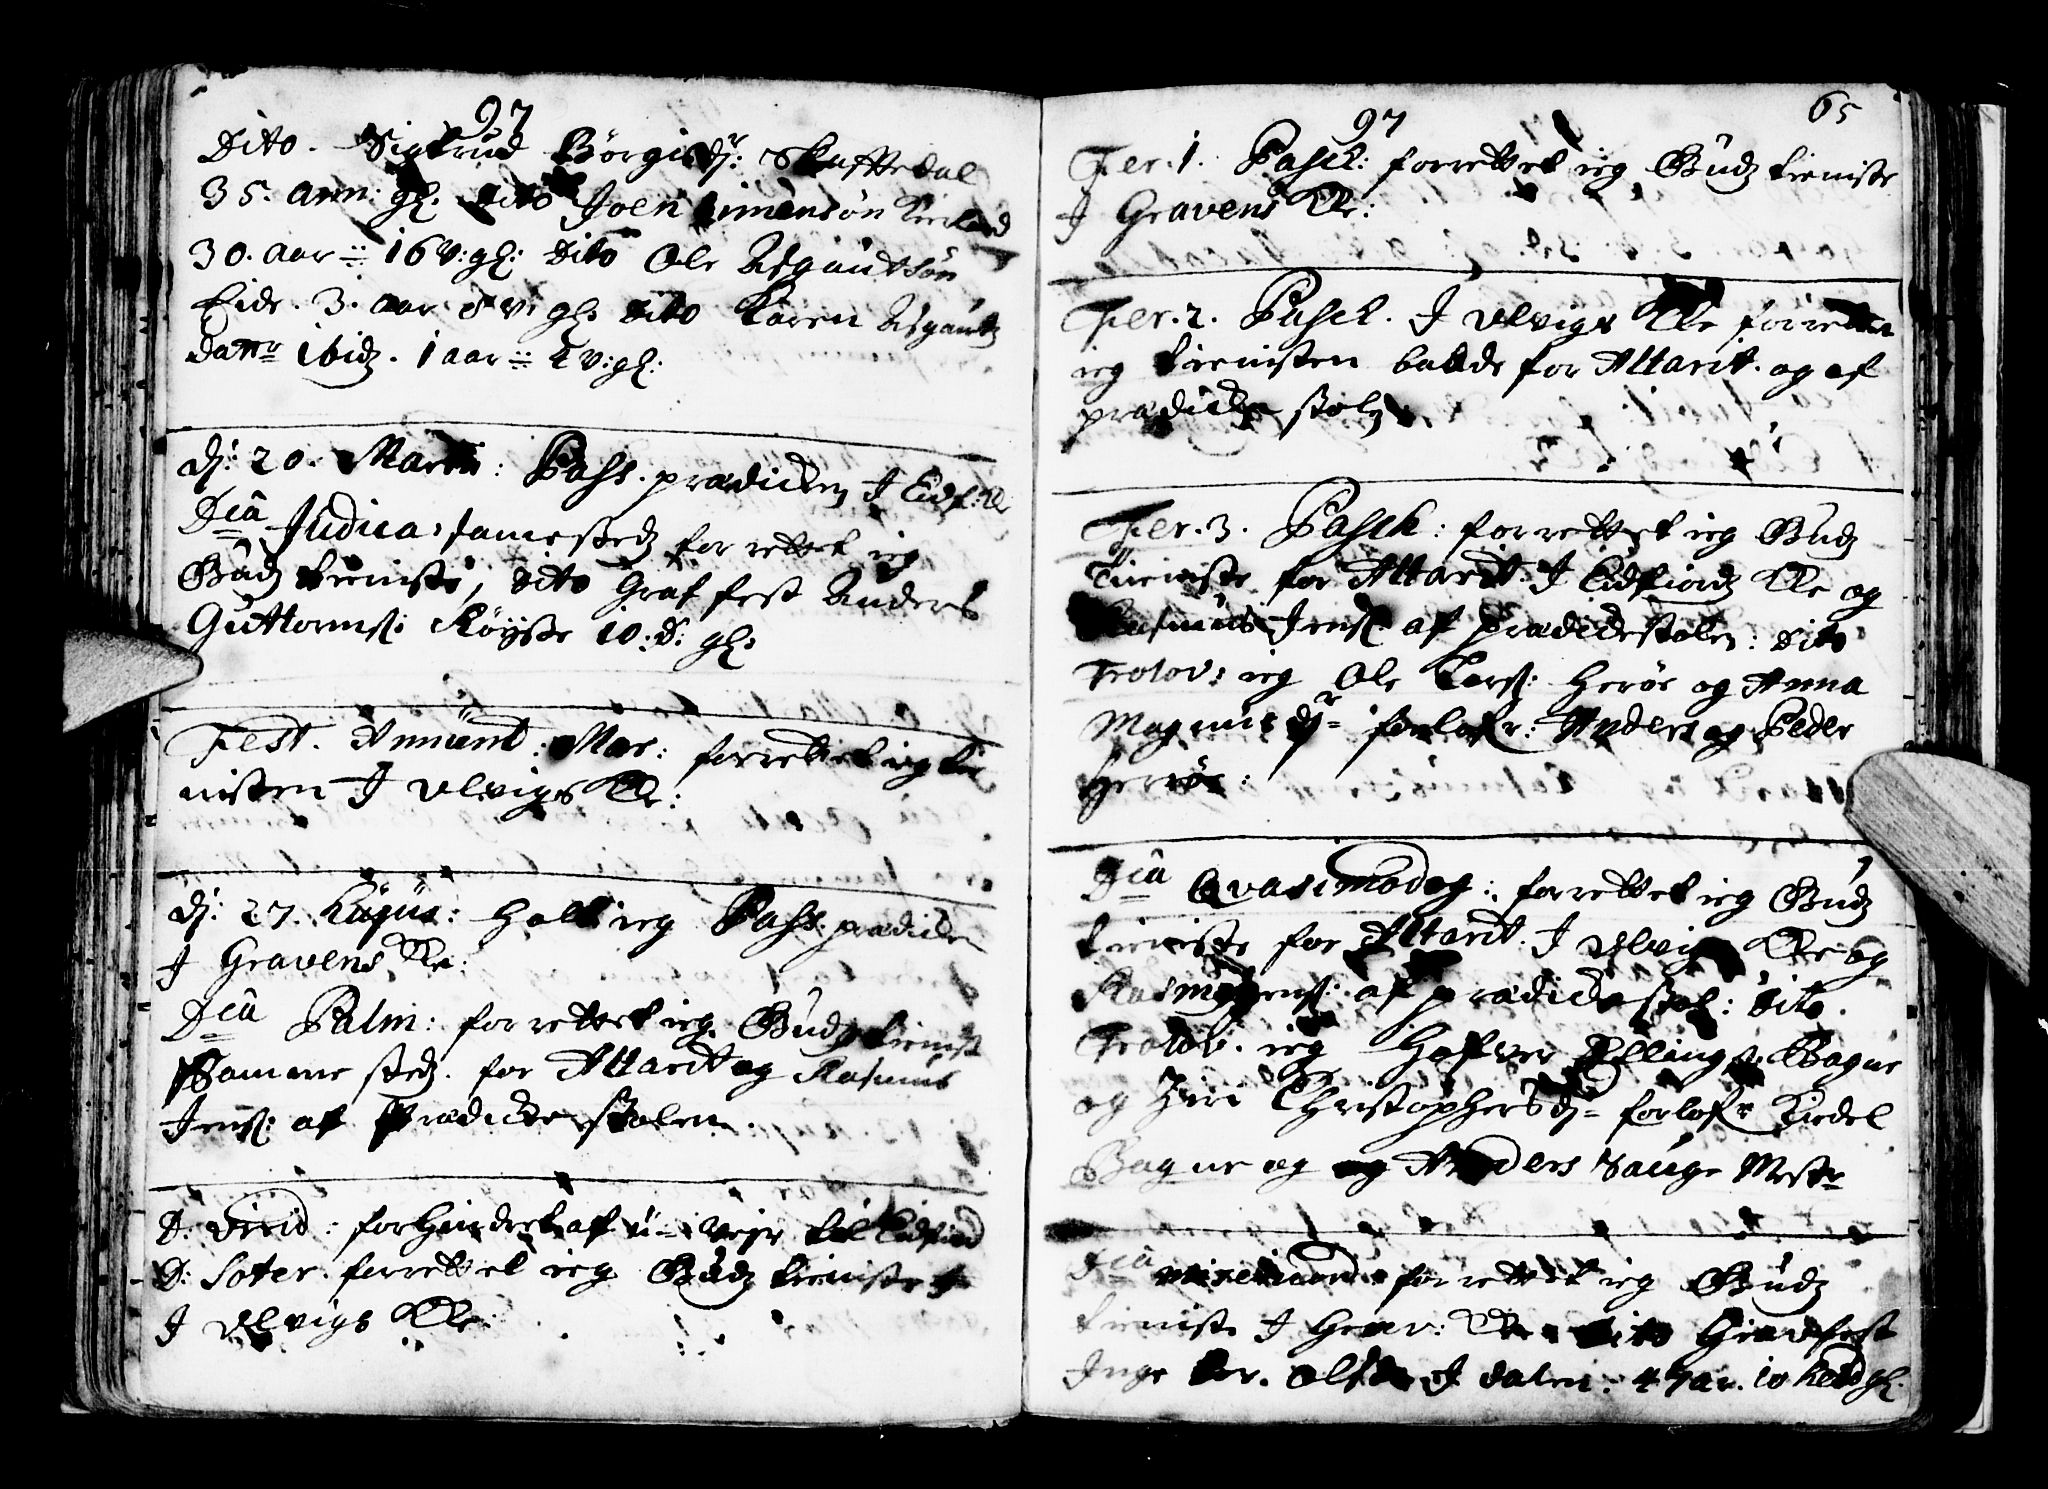 97
Dito. Sigtrud Børgisdr: Skaftedal
35. ann: gl. dito Joen Simensøn
30. aar :: 16 v: gl: dito Ole Asgautsøn
Eide. 3. aar 8 v: gl: dito Karen Asgauts
datr ibid. 1 aar :: 4 v: gl:
dj: 20. Martii: Pass. prædicken J Eidf: K
Dca Judica, sameßtedz forrettet ieg
Gudz tieniste, dito Graffest Anders
Guttorms: Røysse 10: d: gl:
Fest. Annunt: Mar: forrettet ieg tie
nisten J Ulvigs Ke:
dj: 27. hujus: holt ieg Pass: prædicken
J Gravens Ke:
Dca Palm: forrettet ieg Gudz tienist
Samme stedz. for Altaret og Rasmus
Jens: af Prædicke stolen.
D: Virid: forhindret af u-vejr til Eidfiord
D: Soter. forrettet ieg Gudz tieniste
J Ulvigs Ke:
97
65
Fer. 1. Pasch: forrettet ieg Gudz tieniste
J Gravens Ke:
Fer. 2. Pasch. J Ulvigs Ke forrettet
ieg tienisten baade for Altarit. og af
prædicke stolen
Fer. 3. Pasch: forrettet ieg Gudz
tieniste for Altarit. J Eidfiordz Ke og
Rasmus Jens: af prædickestolen: dito
Trolov: ieg Ole Lars: Herøe og Anna
Magnusdr forlofr: Anders og Peder
Herøe:
Dca Qvasimodog: forrettet ieg Gudz
tieniste for Altarit. J Ulvigs Ke og
Rasmus Jens: af prædickestol: dito.
Trolov. ieg Hofver Ellings: Bagne
og Ziri Christophersdr forlofr Kiedel
Bagne og og Anders Sauge Mestr
Dca misericord: forrettet ieg Gudz
tieniste J Grav: Ke dito Gradfest
Inge J dalen: 47 ar. gl.